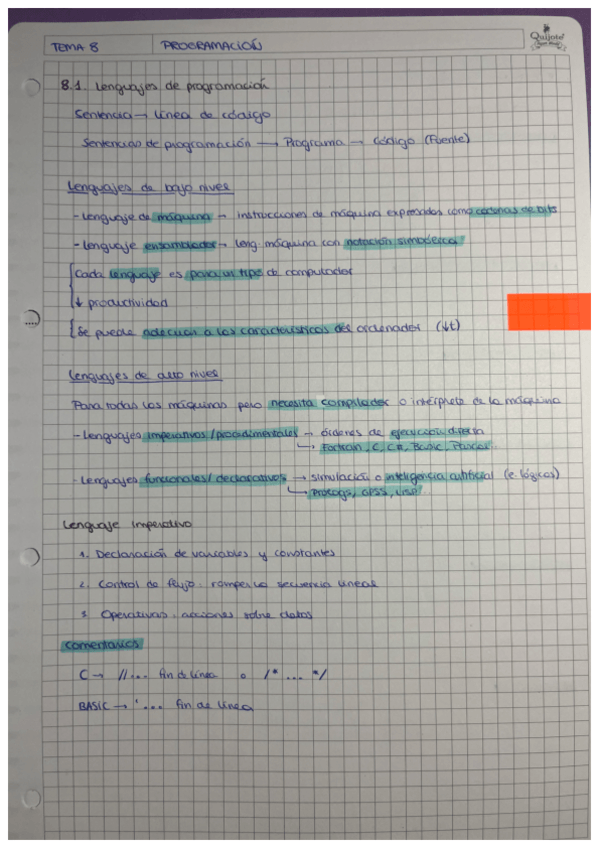 Quijote
TEMA 8 PROGRAMACIÓN
8.1. Lenguajes de programación
Sentencia → línea de código
Sentencias de programación → Programa → Código (Fuente)
Lenguajes de bajo nivel
- Lenguaje de máquina → instrucciones de máquina expresados como cadenas de bits
- Lenguaje ensamblador → leng. máquina con notación simbólica
Cada lenguaje es para un tipo de computador
↓ productividad
Se puede adecuar a las características del ordenador (↓t)
Lenguajes de alto nivel
Para todas las máquinas pero necesita compilador o intérprete de la máquina
- Lenguajes imperativos/procedimentales → órdenes de ejecución directa
↳ Fortran, C, C#, Basic, Pascal...
- Lenguajes funcionales/declarativos → simulación o inteligencia artificial (e. lógicas)
↳ GPSS, LISP
Lenguaje imperativo
1. Declaración de variables y constantes
2. Control de flujo: romper la secuencia lineal
3. Operativas: acciones sobre datos
Comentarios
C → //... fin de línea o /* ... */
BASIC → ' ... fin de línea